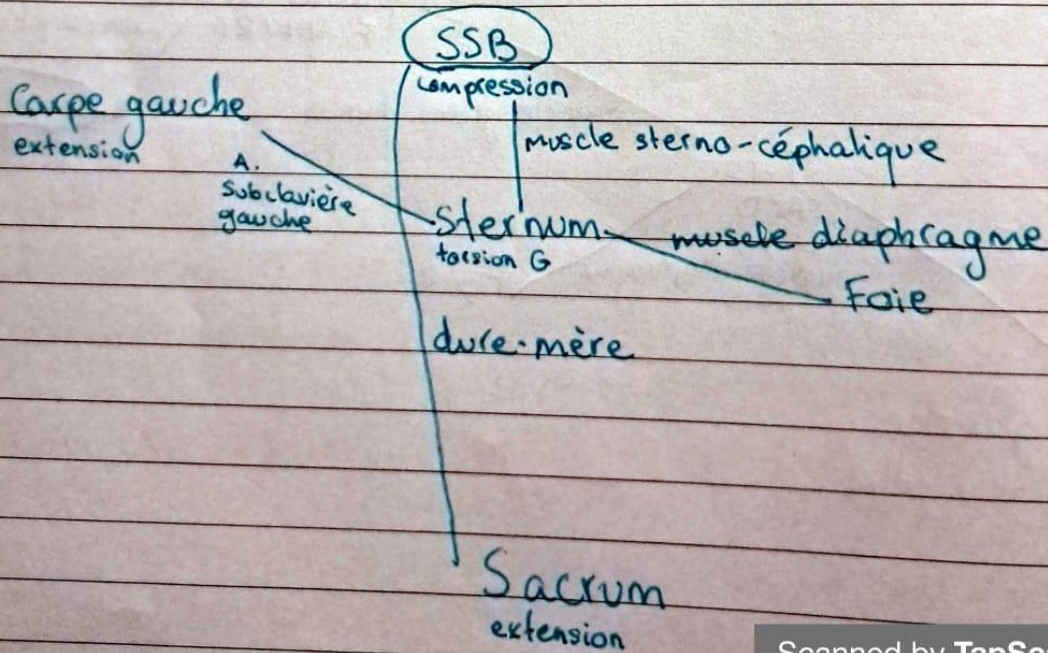 SSB
compression
Carpe gauche
extension
muscle sterno-céphalique
A.
subclavière
gauche
Sternum
torsion G
muscle diaphragme
Foie
dure-mère
Sacrum
extension
Scanned by